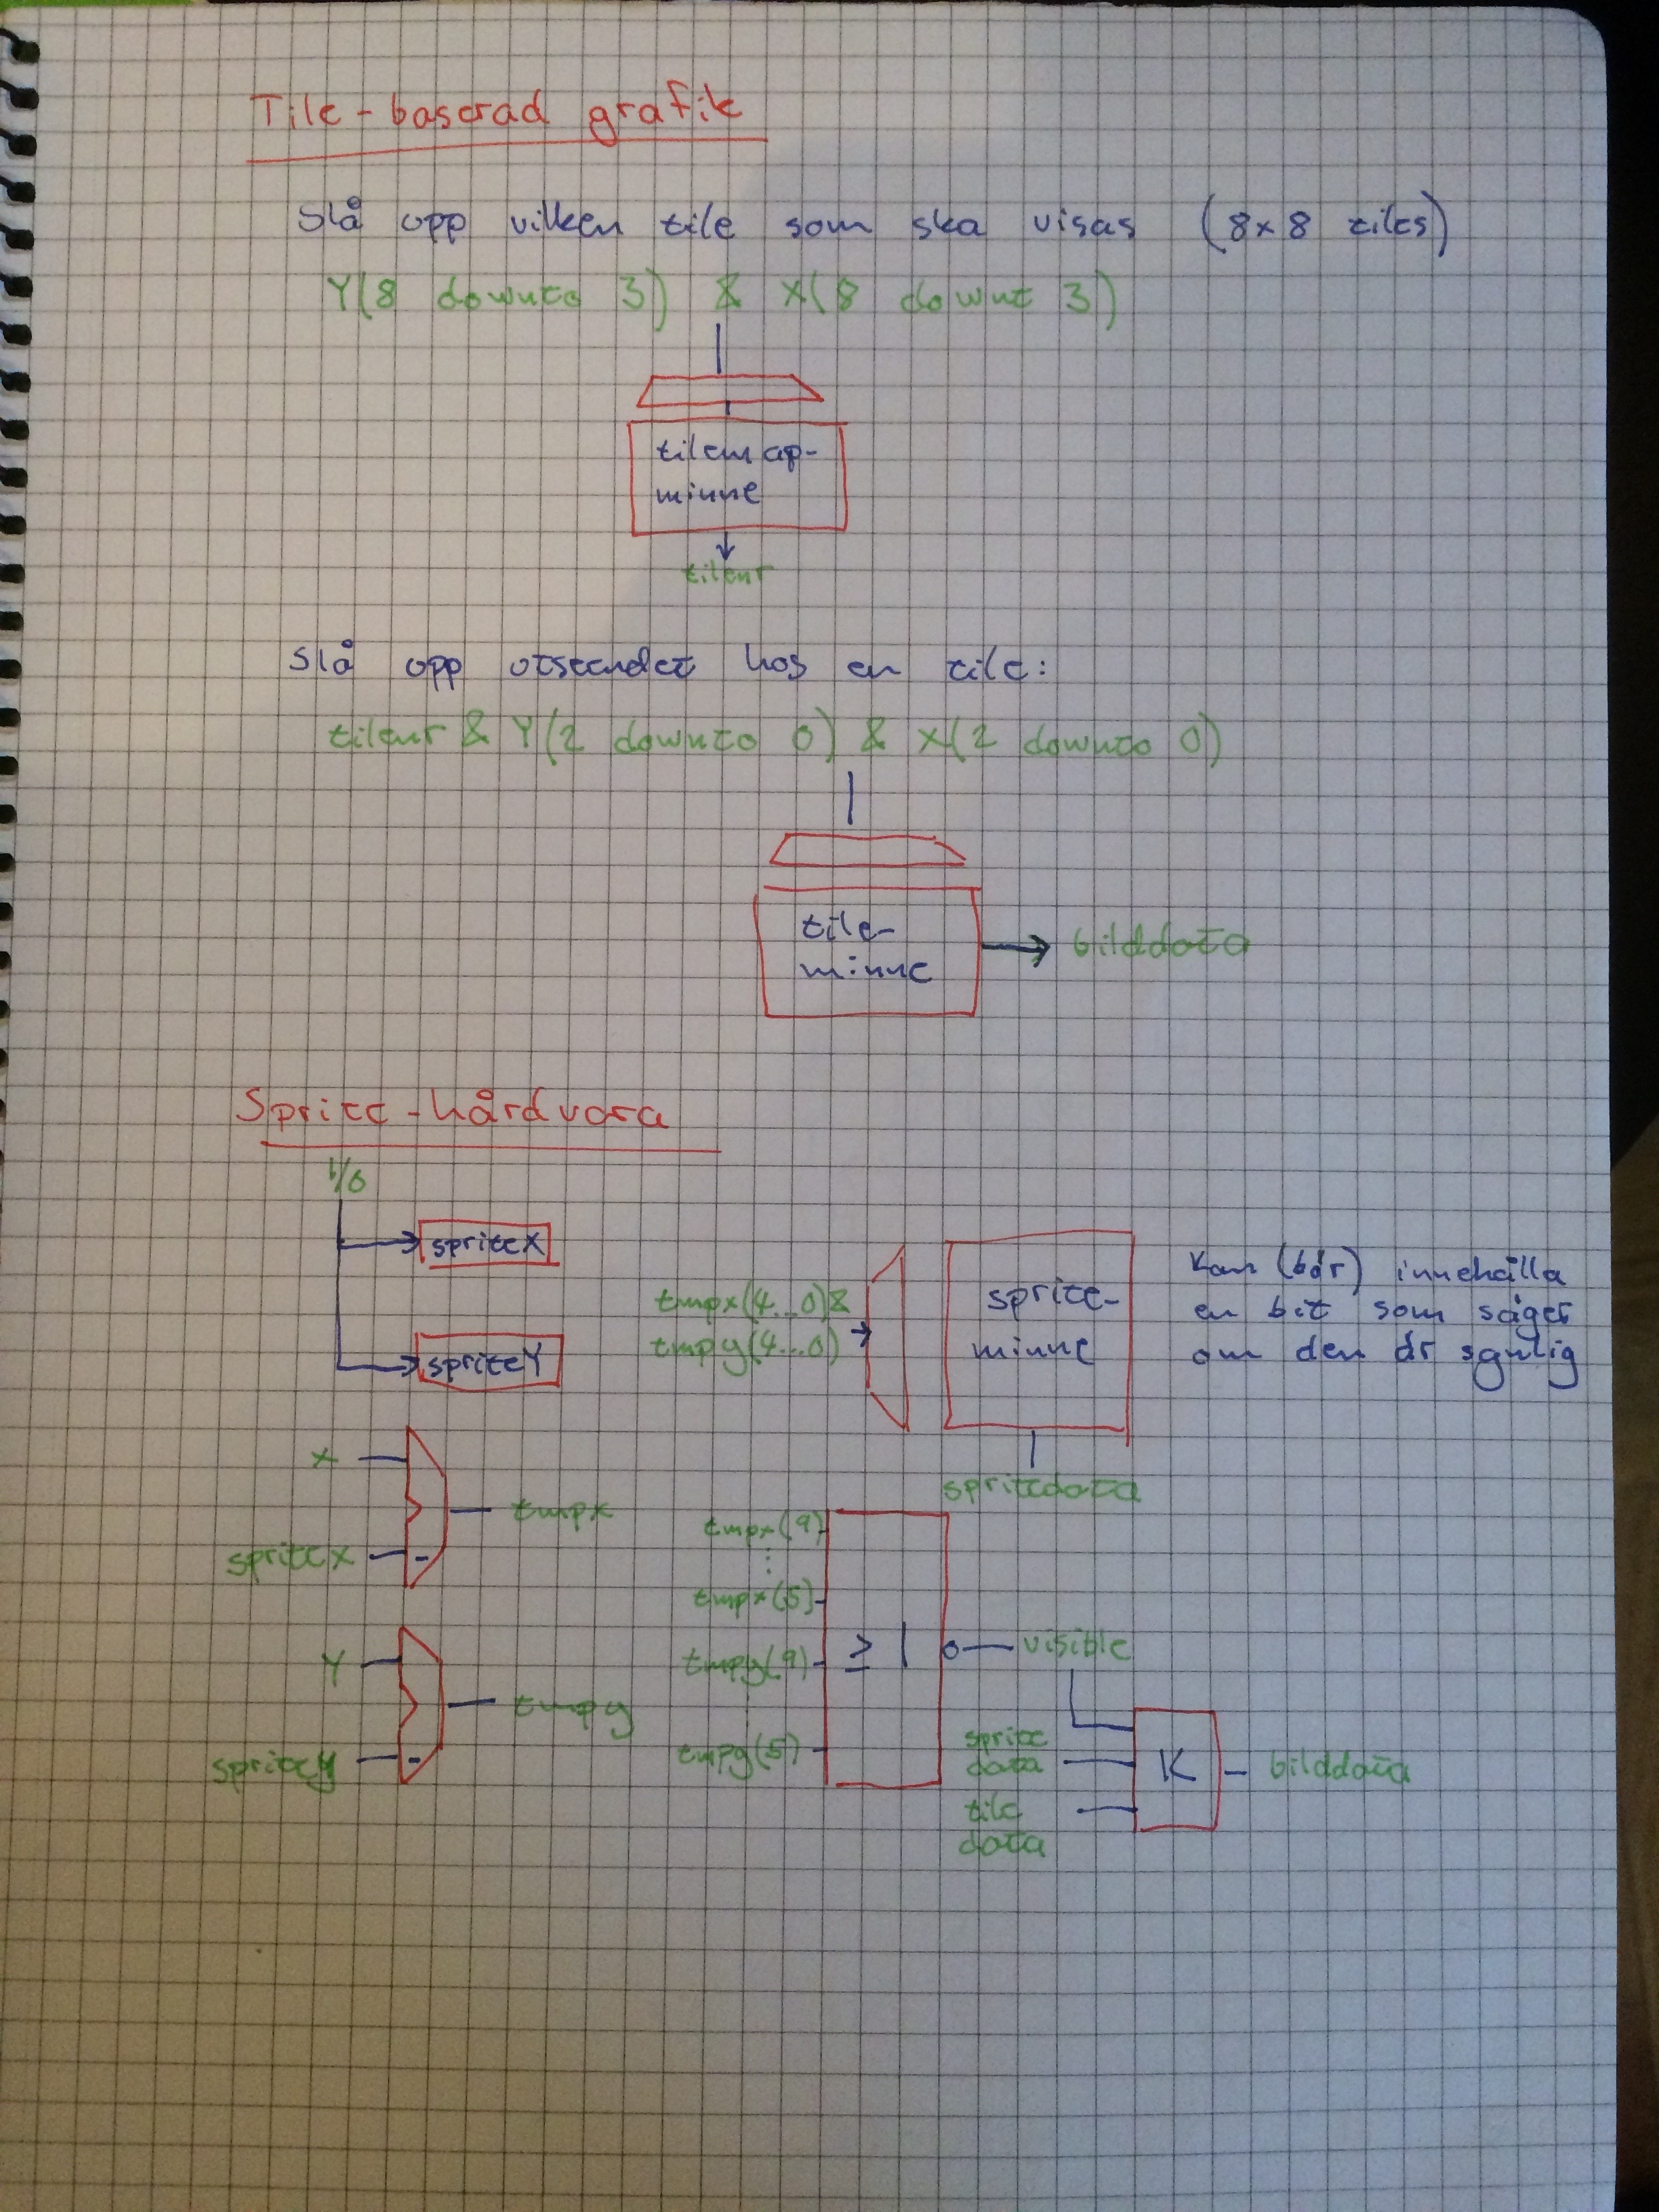 Tile-baserad grafik
Slå opp vilken tile som ska visas (8x8 tiles)
Y(8 downto 3) & X(8 downt 3)
tilemap-
minne
tilenr
Slå opp utseendet hos en tile:
tilenr & Y(2 downto 0) & X(2 downto 0)
tile-
minne
bilddata
Sprite-hårdvara
I/O
spriteX
spriteY
tmpx(4...0)&
tmpy(4...0)
sprite-
minne
Kan (bör) innehålla
en bit som säger
om den är synlig
spritedata
X
spritex
-
tmpx
Y
spritey
-
tmpy
tmpx(9)
⋮
tmpx(5)
tmpy(9)
⋮
tmpy(5)
≥ 1
visible
sprite
data
tile
data
K
bilddata